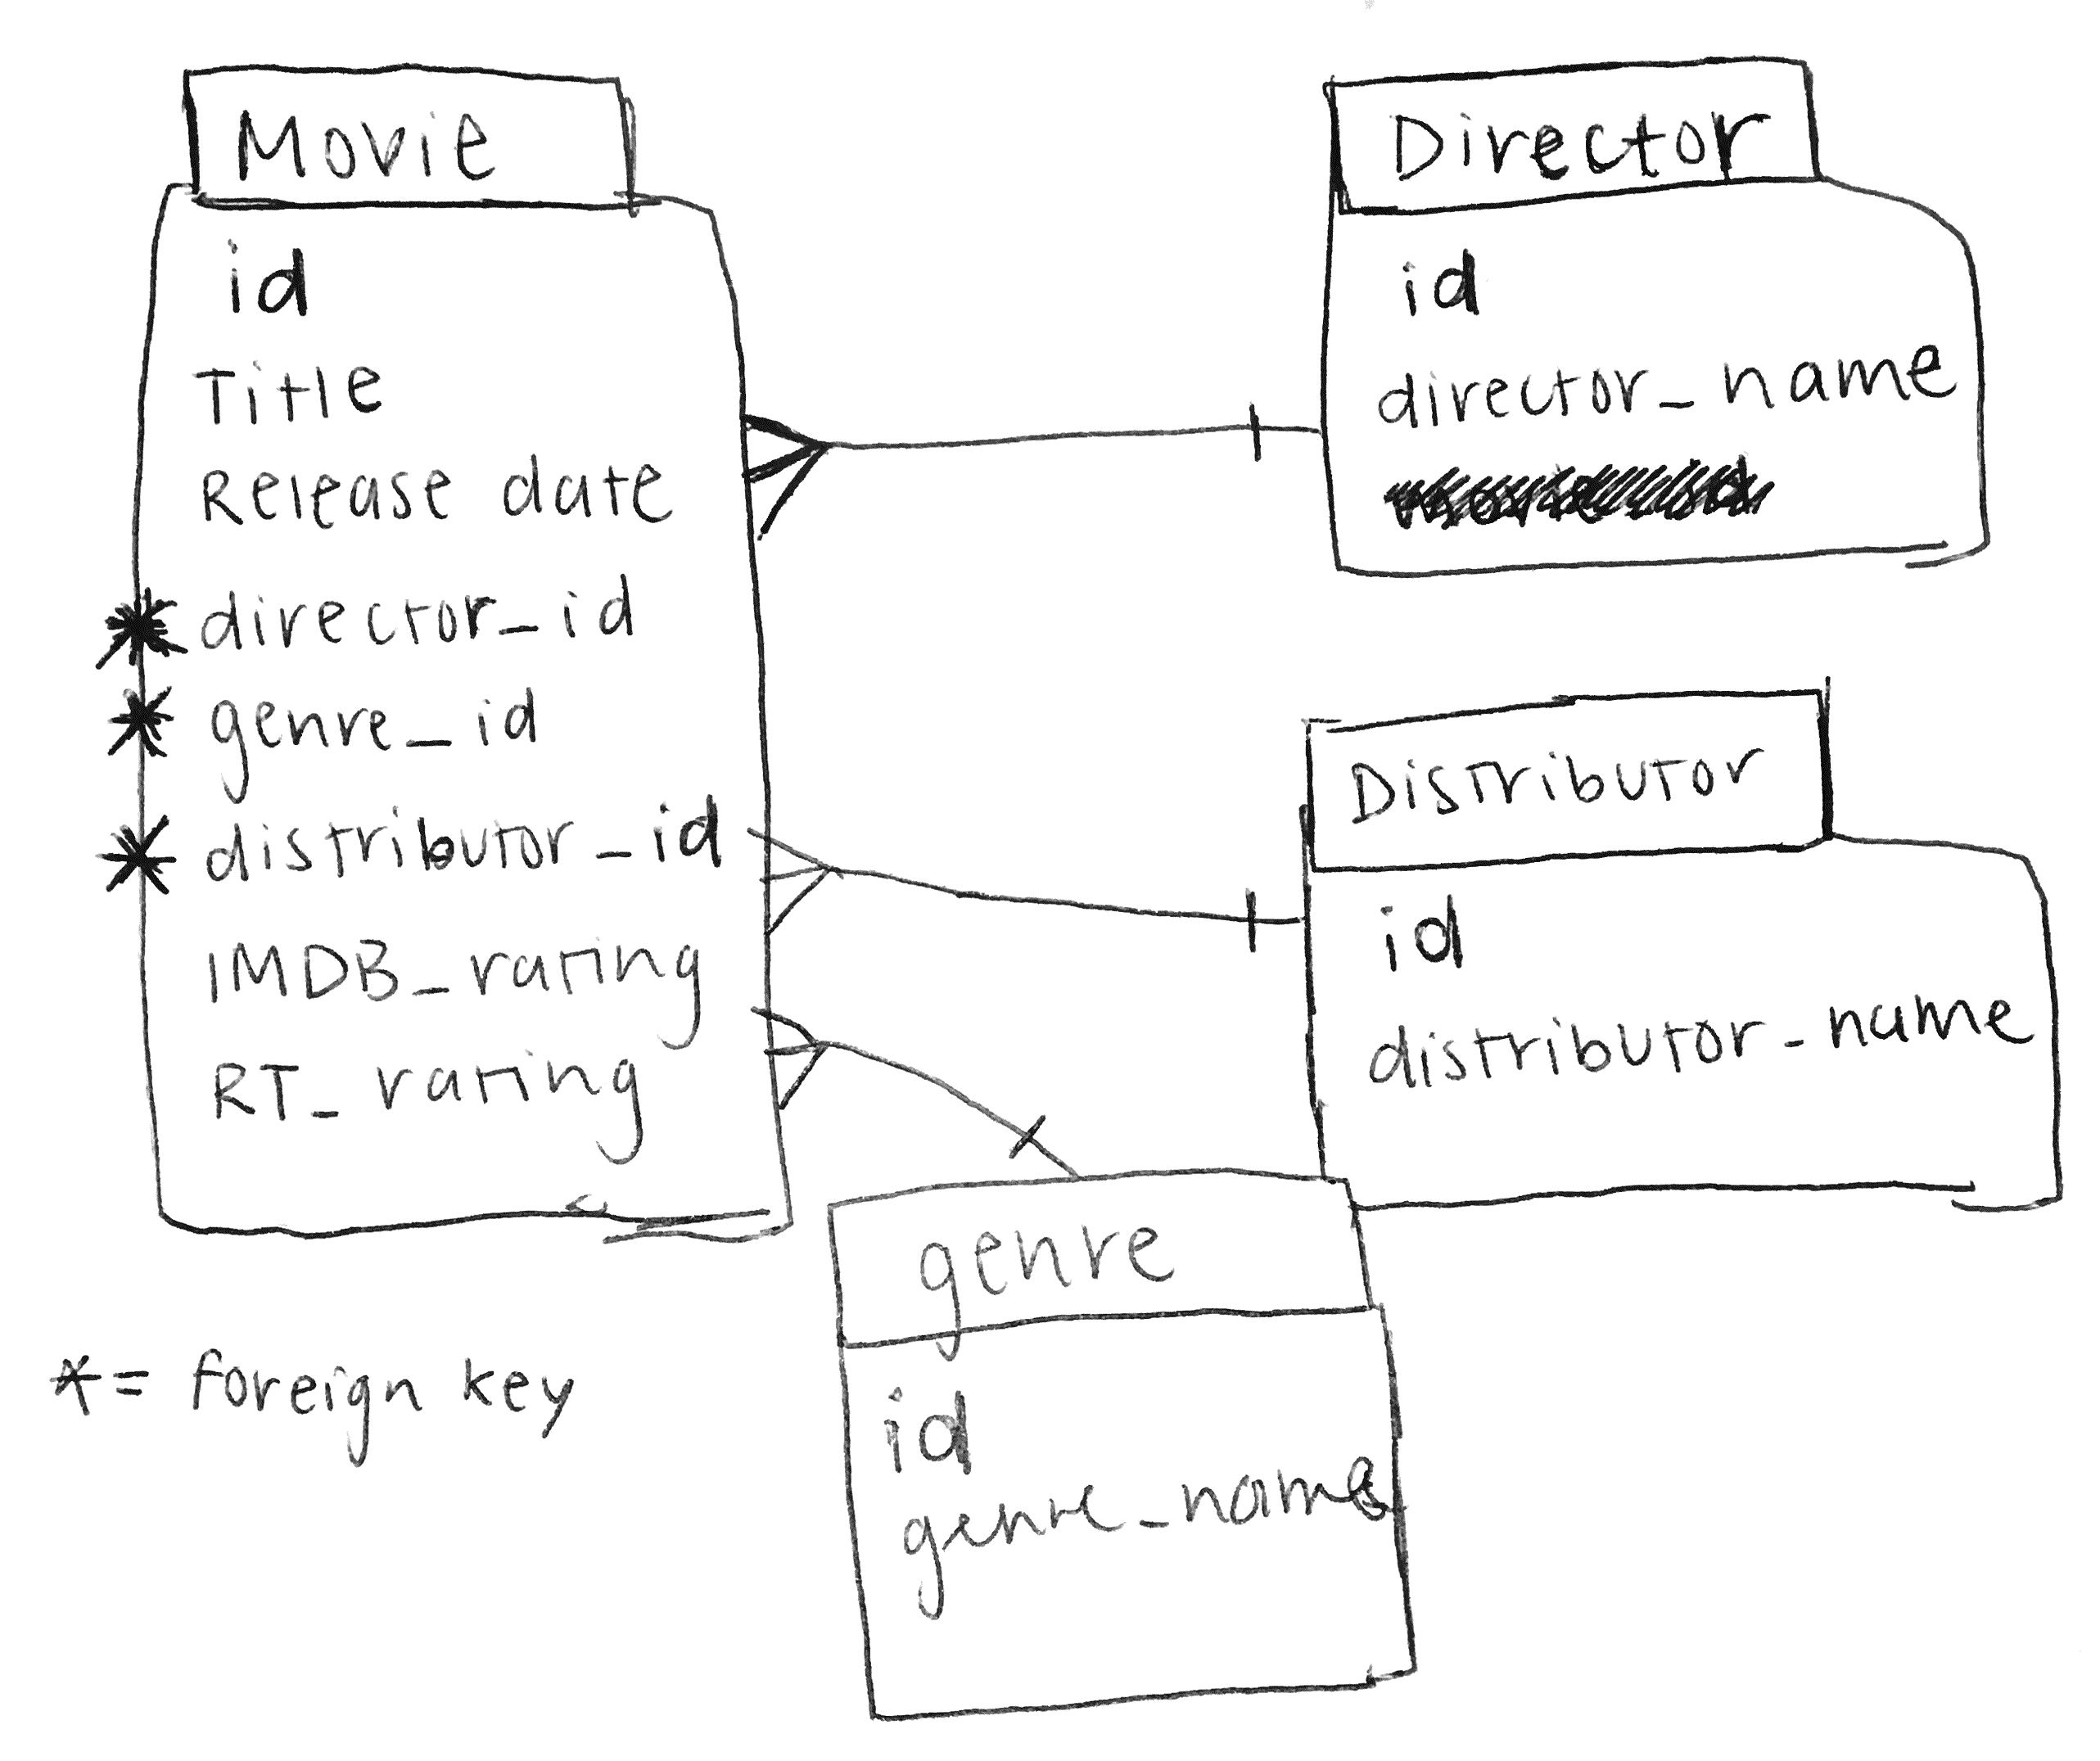 Movie
id
Title
Release date
* director_id
* genre_id
* distributor_id
IMDB_rating
RT_rating
Director
id
director_name
Distributor
id
distributor_name
genre
id
genre_name
*= foreign key